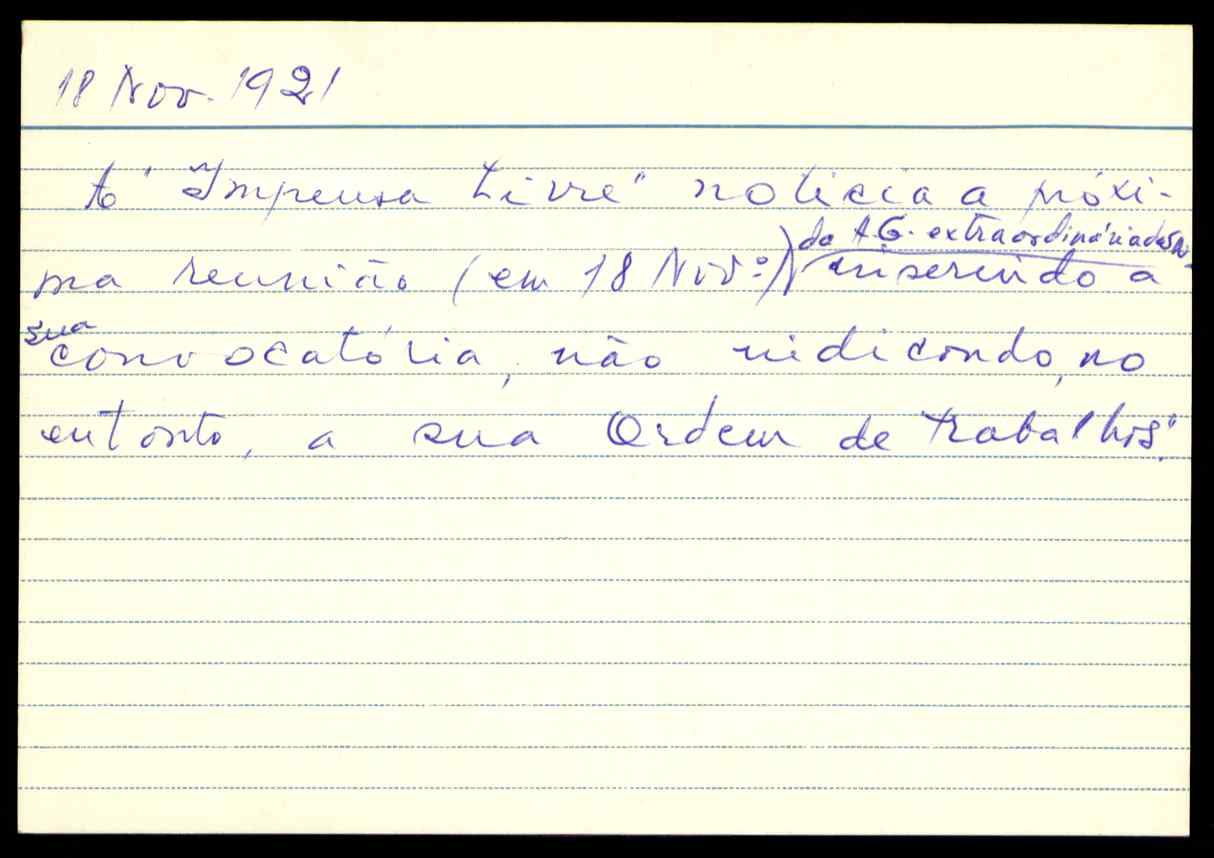 18 Nov. 1921
A "Imprensa Livre" noticia a próxi-
da A.G. extraordinária da
ma reunião (em 18 Novº) inserindo a
sua
convocatória, não indicando, no
entanto, a sua Ordem de trabalhos."